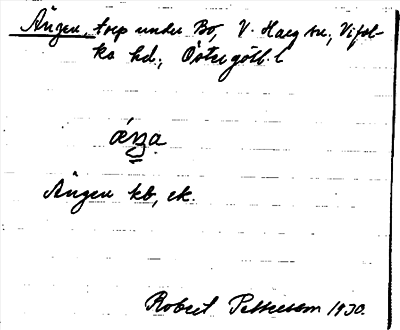 Ängen, torp under Bo, V. Harg sn, Vifol-
ka hd., Östergötl. l
ǽŋa
Ängen kb, ek.
Robert Pettersson 1930.